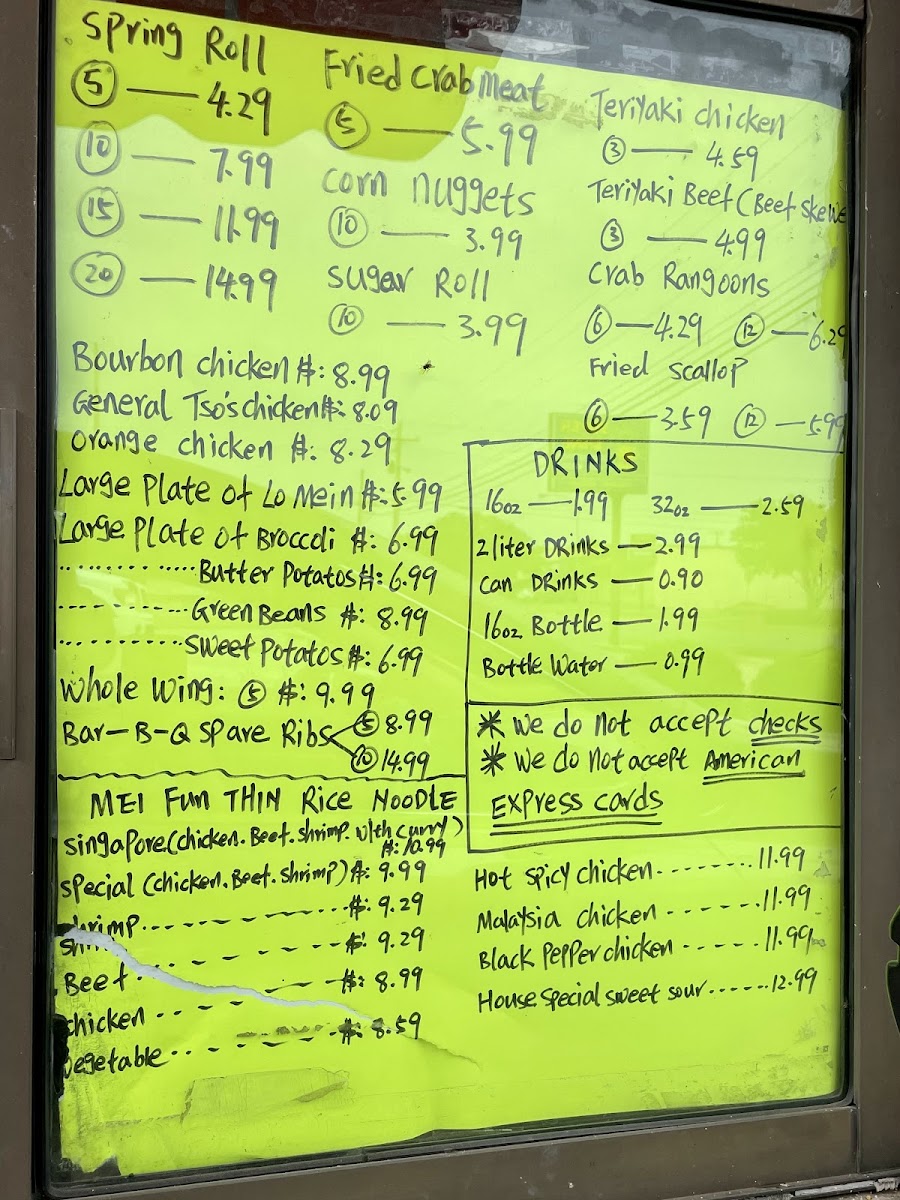 Spring Roll
5 — 4.29
10 — 7.99
15 — 11.99
20 — 14.99
Fried Crab Meat
5 — 5.99
corn nuggets
10 — 3.99
sugar Roll
10 — 3.99
Teriyaki chicken
3 — 4.59
Teriyaki Beef (Beef Skewe
3 — 4.99
Crab Rangoons
6 — 4.29 12 — 6.29
Fried scallop
6 — 3.59 12 — 5.99
Bourbon chicken $: 8.99
General Tso's chicken $: 8.09
orange chicken $: 8.29
Large Plate of Lo Mein $: 5.99
Large Plate of Broccoli $: 6.99
.............. Butter Potatos $: 6.99
------------- Green Beans $: 8.99
............. Sweet Potatos $: 6.99
whole wing: 5 $: 9.99
Bar-B-Q Spare Ribs < 5 8.99
10 14.99
DRINKS
16oz — 1.99 32oz — 2.59
2 liter DRinks — 2.99
can DRinks — 0.90
16oz Bottle — 1.99
Bottle Water — 0.99
* we do not accept checks
* we do not accept American
Express cards
MEI Fun THIN Rice NOODLE
singapore (chicken. Beef. shrimp with curry)
$: 10.99
special (chicken. Beef. shrimp) $: 9.99
shrimp ------ $: 9.29
------ $: 9.29
Beef ------ $: 8.99
chicken ------ $: 8.59
vegetable ------
Hot spicy chicken -------- 11.99
Malaysia chicken ------- 11.99
Black Pepper chicken ------ 11.99
House special sweet sour ------ 12.99